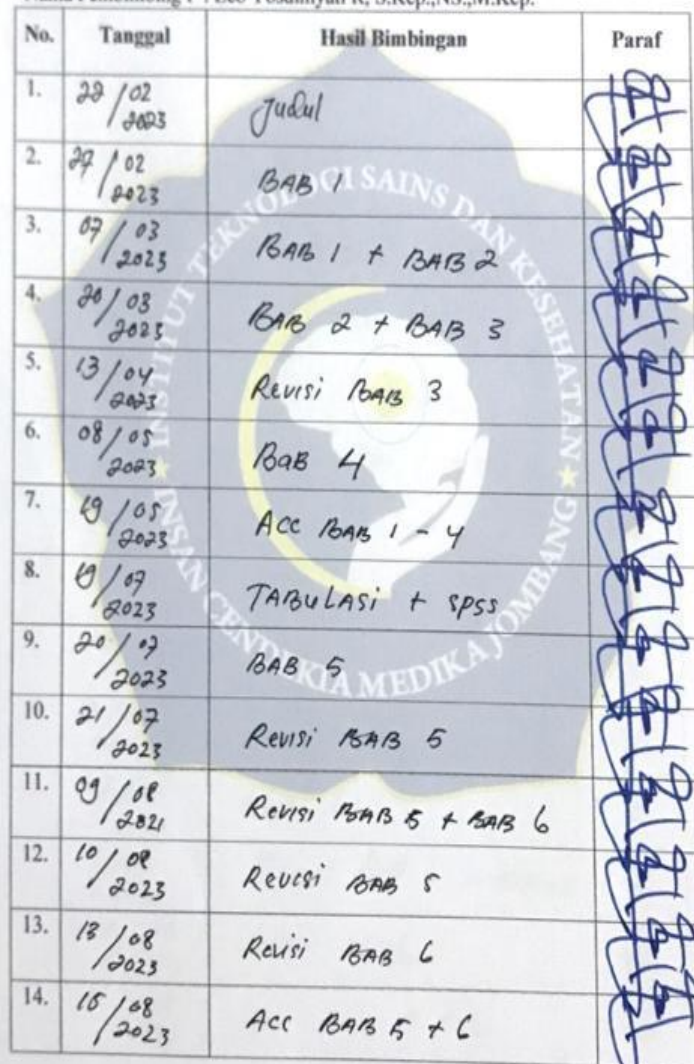 No. Tanggal Hasil Bimbingan Paraf
1. 22/02 2023 Judul
2. 27/02 2023 BAB 1
3. 07/03 2023 BAB 1 + BAB 2
4. 20/03 2023 BAB 2 + BAB 3
5. 13/04 2023 Revisi BAB 3
6. 08/05 2023 BaB 4
7. 19/05 2023 Acc BAB 1 - 4
8. 19/07 2023 TABULASi + SPSS
9. 20/07 2023 BAB 5
10. 21/07 2023 Revisi BAB 5
11. 09/08 2021 Revisi BAB 5 + BAB 6
12. 10/08 2023 Revisi BAB 5
13. 13/08 2023 Revisi BAB 6
14. 15/08 2023 Acc BAB 5 + 6
INSTITUT TEKNOLOGI SAINS DAN KESEHATAN
INSAN CENDEKIA MEDIKA JOMBANG